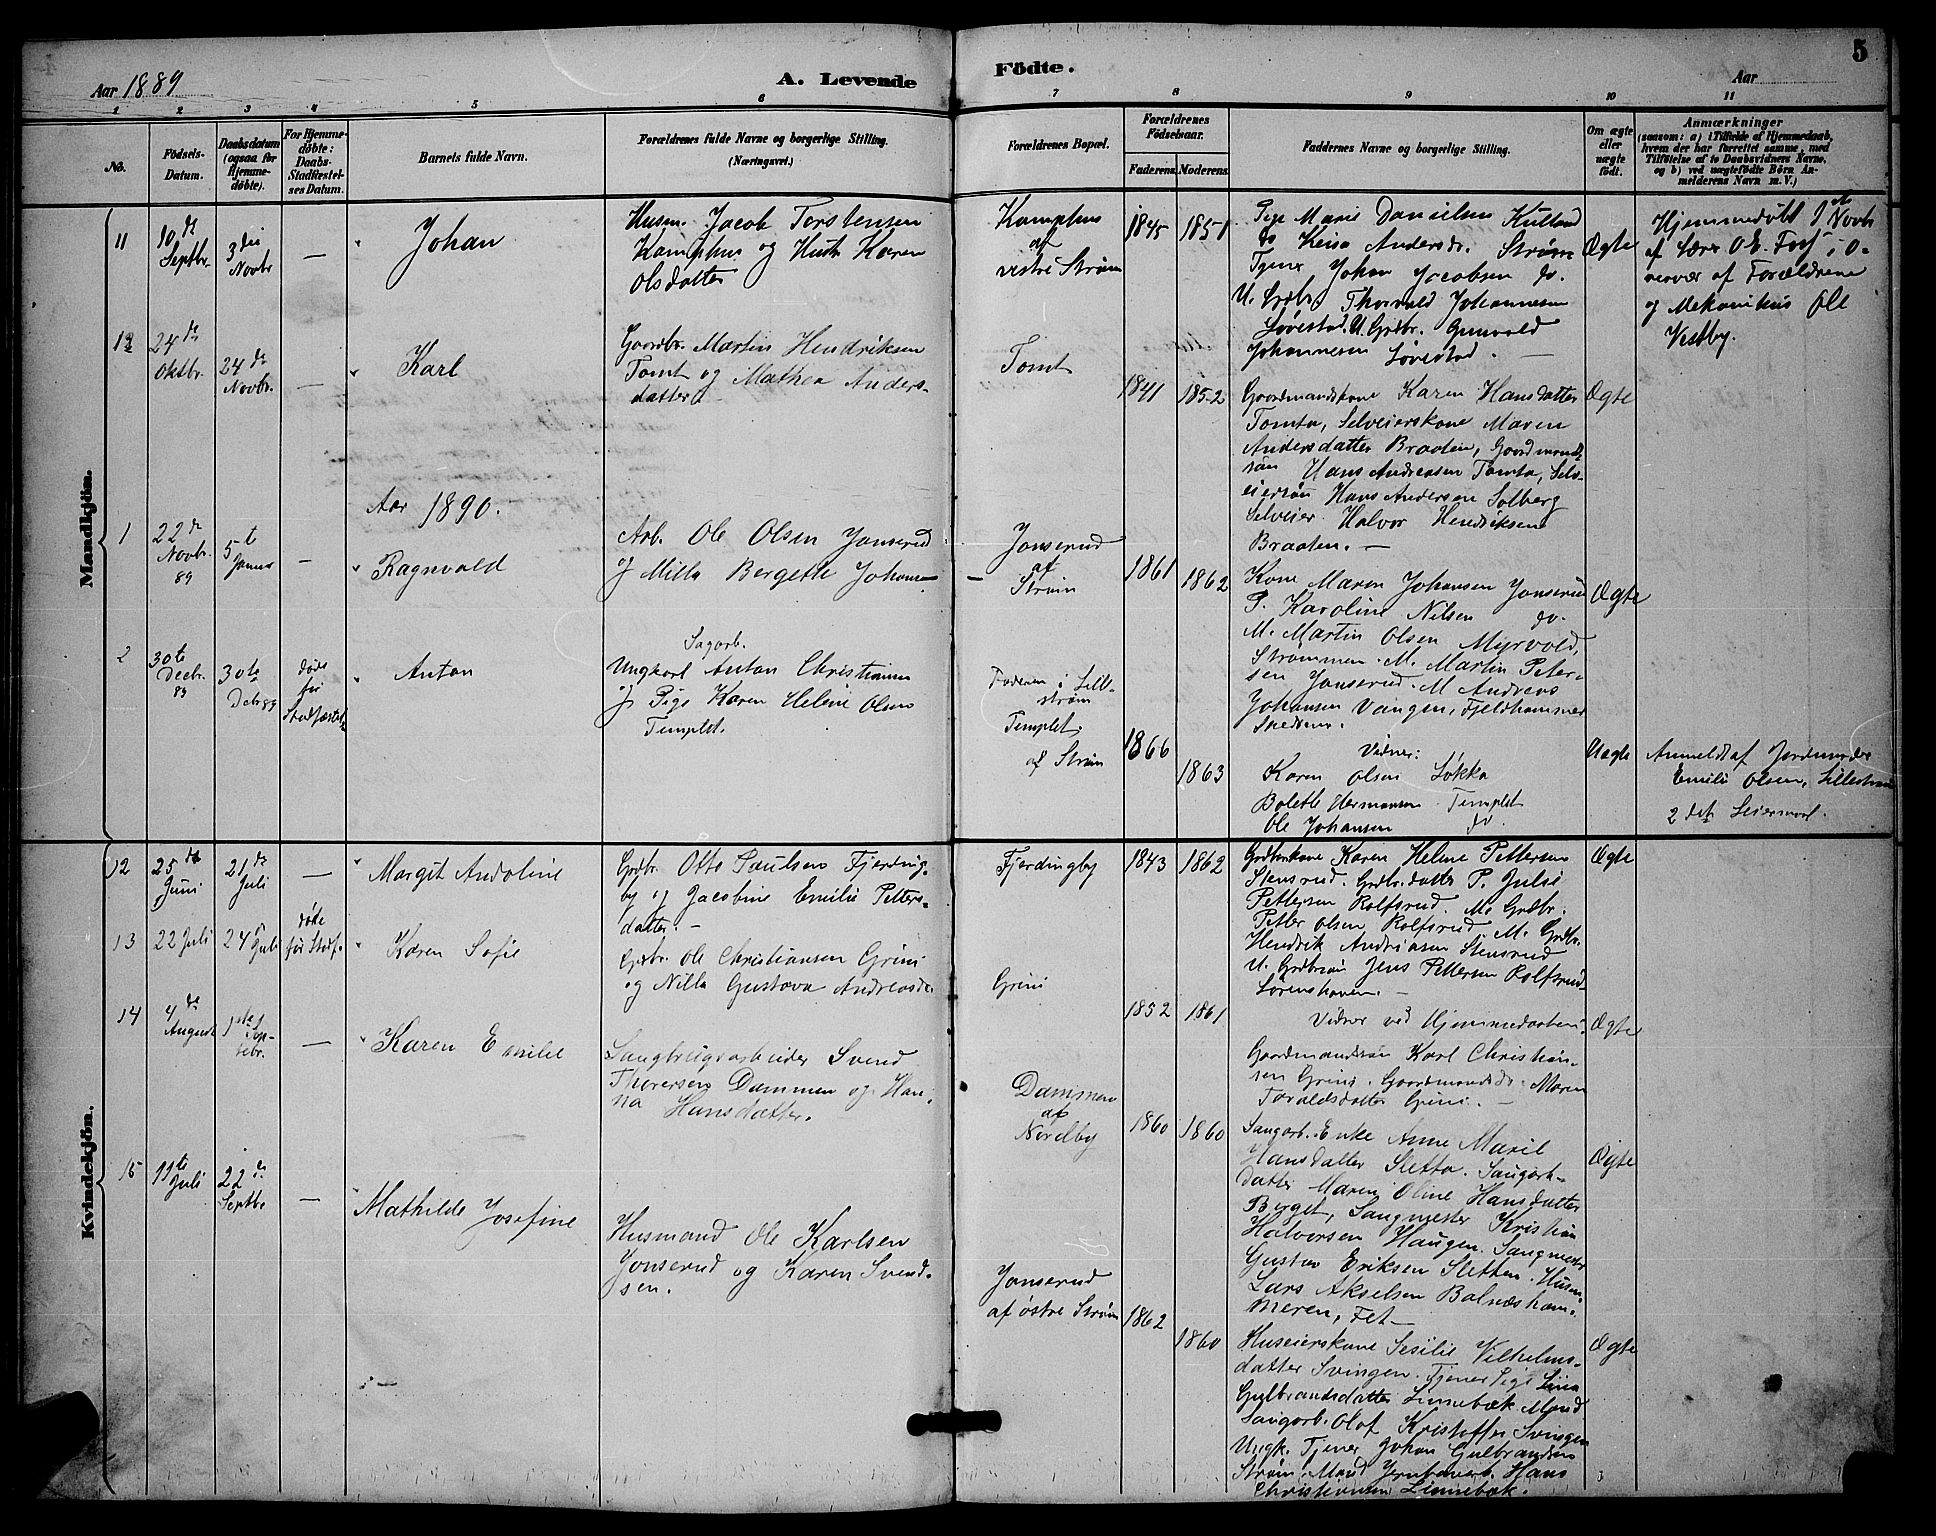 Aar 1889
A. Levende
Födte.
Aar
5
1 2 3 4 5 6 7 8 9 10 11
No.
Födsels-
Datum.
Daabsdatum
(ogsaa for
Hjemme-
döbte).
For Hjemme-
döbte:
Daabs-
Stadfæstel-
ses Datum.
Barnets fulde Navn.
Forældrenes fulde Navne og borgerlige Stilling.
(Næringsvei.)
Forældrenes Bopæl.
Forældrenes
Födselsaar.
Faderens.
Moderens.
Faddernes Navne og borgerlige Stilling.
Om ægte
eller
uægte
födt.
Anmærkninger
(saasom: a) i Tilfælde af Hjemmedaab,
hvem der har forrettet samme, med
Tilföielse af to Daabsvidners Navne,
og b) ved uægtefödte Börn An-
melderens Navn m. V.)
Mandkjön.
11
10de
Septbr.
3die
Novbr
—
Johan
Husm. Jacob Torstensen
Kamphus og Hustr Karen
Olsdatter
Kamphus
af
vestre Strøm
1845
1851
Pige Marie Danielsen
do Andersdr. Strøm
Tjener Johan Jacobsen do.
U. Grdbr. Thorvald Johannesen
Løvestad. U. Grdbr. Gunvald
Johannesen Løvestad. —
Ægte
Hjemmedøbt Novbr
af Lærer O. E.
nervær af Forældrene
og Mekanikus Ole
Vestby.
12
24de
Oktbr.
24de
Novbr.
—
Karl
Gaardbr. Martin Hendriksen
Tomt og Mathea Anders-
datter. —
Tomt
1841
1852
Gaardmandskone Karen Hansdatter
Tomta, Selveierskone Maren
Andersdatter Braaten, Gaardmands-
søn Hans Andreasen Tomta, Selv-
eiersøn Hans Andersen Solberg
Selveier Halvor Hendriksen
Braaten. —
Ægte
Aar 1890.
1
22de
Novbr.
89
5te
Januar
—
Ragnvald
Arb. Ole Olsen Jonserud
og Milla Bergette Johans-
Jonserud
af
Strøm
1861
1862
Kone Maren Johansen Jonserud
P. Karoline Nilsen do.
M. Martin Olsen Myrvold,
Strømmen. M. Martin Peter-
sen Jonserud. M Andreas
Johansen Vangen, Fjeldhammer
Ægte
2
30te
Decbr.
89
30te
Debr 89
døde
før
Stadfæstel
Anton
Sagarb.
Ungkarl Anton Christiansen
og Pige Karen Heline Olsen
Templet.
Faderen i Lille-
strøm
Templet
af Strøm
1866
1863
Vidner:
Karen Olsen Løkka
Bolette Hermansen Templet
Ole Johansen do.
Uægte
Anmeldt af Jordmoder
Emilie Olsen, Lillestrøm
2 det Leiermaal.
Kvindekjön.
12
25de
Juni
21de
Juli
—
Margit Andoline
Grdbr. Otto Paulsen Fjerding-
by og Jacobine Emilie Petters-
datter. —
Fjerdingby
1843
1862
Grdbrskone Karen Helene Pettersen
Stensrud. Grdbr.datter P. Julie
Pettersen Rolfsrud. M. Grdbr.
Petter Olsen Rolfsrud M. Grdbr.
Hendrik Andreasen Stensrud
U. Grdbrsøn Jens Pettersen Rolfsrud
Lørenshaven. —
Ægte
13
22 Juli
24 Juli
døde
før Stadf.
Karen Sofie
Grdbr. Ole Christiansen Grini
og Nilla Gustava Andreasdr.
Grini
1852
1861
Vidner ved Hjemmedaaben:
Gaardmandssøn Karl Christian-
sen Grini. Gaardmandsd. Maren
Grini. —
Ægte
14
4de
August
1ste
Sep-
tebr.
—
Karen Emilie
Saugbrugsarbeider Svend
Thoresen Dammen og Han-
na Hansdatter.
Dammen
af
Nordby
1860
1860
Saugarb. Enke Anne Marie
Hansdatter Sletta. Saugarb-
datter Maren Oline Hansdatter
Berget, Saugmester Kristian
Halvorsen Haugen. Saugmester
Gustav Eriksen Sletten. Husm.
Lars Akselsen Balnæsham-
meren, Fet —
Ægte
15
11te
Juli
22de
Septbr
—
Mathilde Josefine
Husmand Ole Karlsen
Jonserud og Karen Svend-
sen.
Jonserud
af østre Strøm
1862
1860
Huseierskone Sesilie Vilhelms-
datter Svingen. Tjener Pige Lina
Gulbrandsdatter Linnebæk. Mand
Saugarb. Olaf Kristoffer Svingen
Ungk. Tjener Johan Gulbrandsen
Strøm. Mand Jernbanearb. Hans
Christiansen Linnebæk.
Ægte